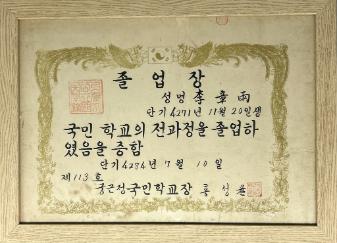 졸업장
성명 李章雨
단기 4271년 11월 20일생
국민 학교의 전과정을 졸업하
였음을 증함
단기 4284년 7월 10일
제113호
국민학교장